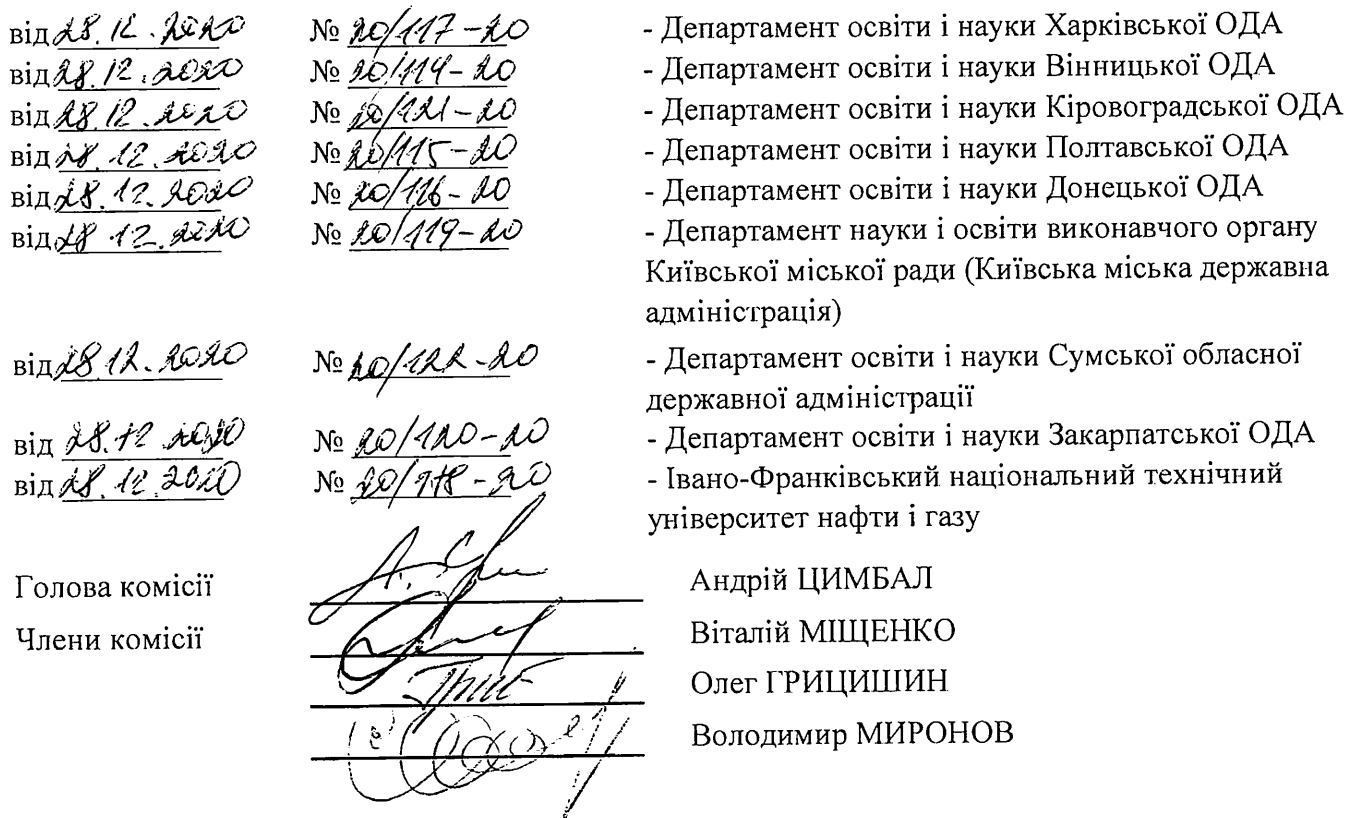 від 28.12.2020 № 20/117-20 - Департамент освіти і науки Харківської ОДА
від 28.12.2020 № 20/114-20 - Департамент освіти і науки Вінницької ОДА
від 28.12.2020 № 20/121-20 - Департамент освіти і науки Кіровоградської ОДА
від 28.12.2020 № 20/115-20 - Департамент освіти і науки Полтавської ОДА
від 28.12.2020 № 20/116-20 - Департамент освіти і науки Донецької ОДА
від 28.12.2020 № 20/119-20 - Департамент науки і освіти виконавчого органу
Київської міської ради (Київська міська державна
адміністрація)
від 28.12.2020 № 20/122-20 - Департамент освіти і науки Сумської обласної
державної адміністрації
від 28.12.2020 № 20/120-20 - Департамент освіти і науки Закарпатської ОДА
від 28.12.2020 № 20/118-20 - Івано-Франківський національний технічний
університет нафти і газу
Голова комісії Андрій ЦИМБАЛ
Члени комісії Віталій МІЩЕНКО
Олег ГРИЦИШИН
Володимир МИРОНОВ